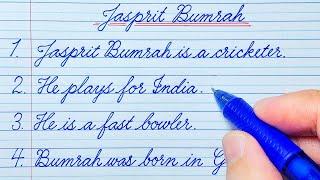 Jasprit Bumrah
1. Jasprit Bumrah is a cricketer.
2. He plays for India.
3. He is a fast bowler.
4. Bumrah was born in G